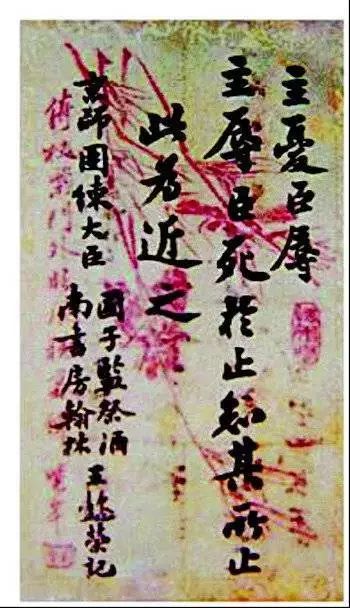 主憂臣辱
主辱臣死於止知其所止
此為近之
京師團練大臣
國子監祭酒
南書房翰林
王懿榮記